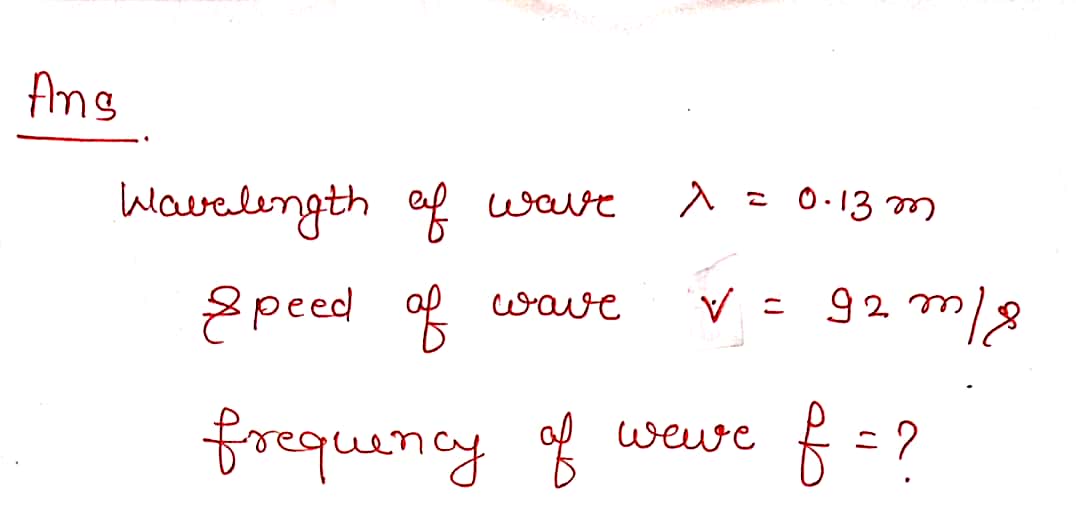 Ans.
Wavelength of wave λ = 0.13 m
Speed of wave v = 92 m/s
frequency of wewe f = ?